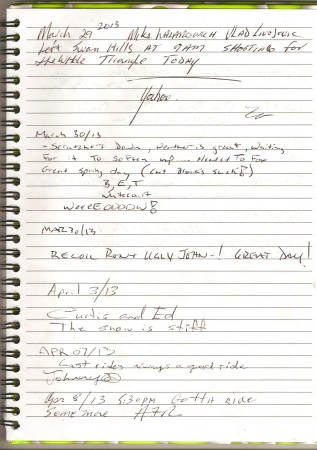 March 29 2013 Mike VLAD
Left Swan Hills AT 9AM SHOOTING for
the whole Triangle TODAY
Yahoo.
March 30/13
- Scratchers Down, Weather is great, waiting
For it To soften up... Needed To Fix
Great spring day (Cat Breaks suck!)
B, E, T
Whitecourt
WeeeEOOOOW!
MAR 30/13
RECOIL RON & UGLY JOHN-! GREAT DAY!
April 3/13
Curtis and Ed
The snow is stiff
APR 07/13
Last rides always a good ride
Johnny
Apr 8/13 5:30pm GOTTA RIDE
Some more